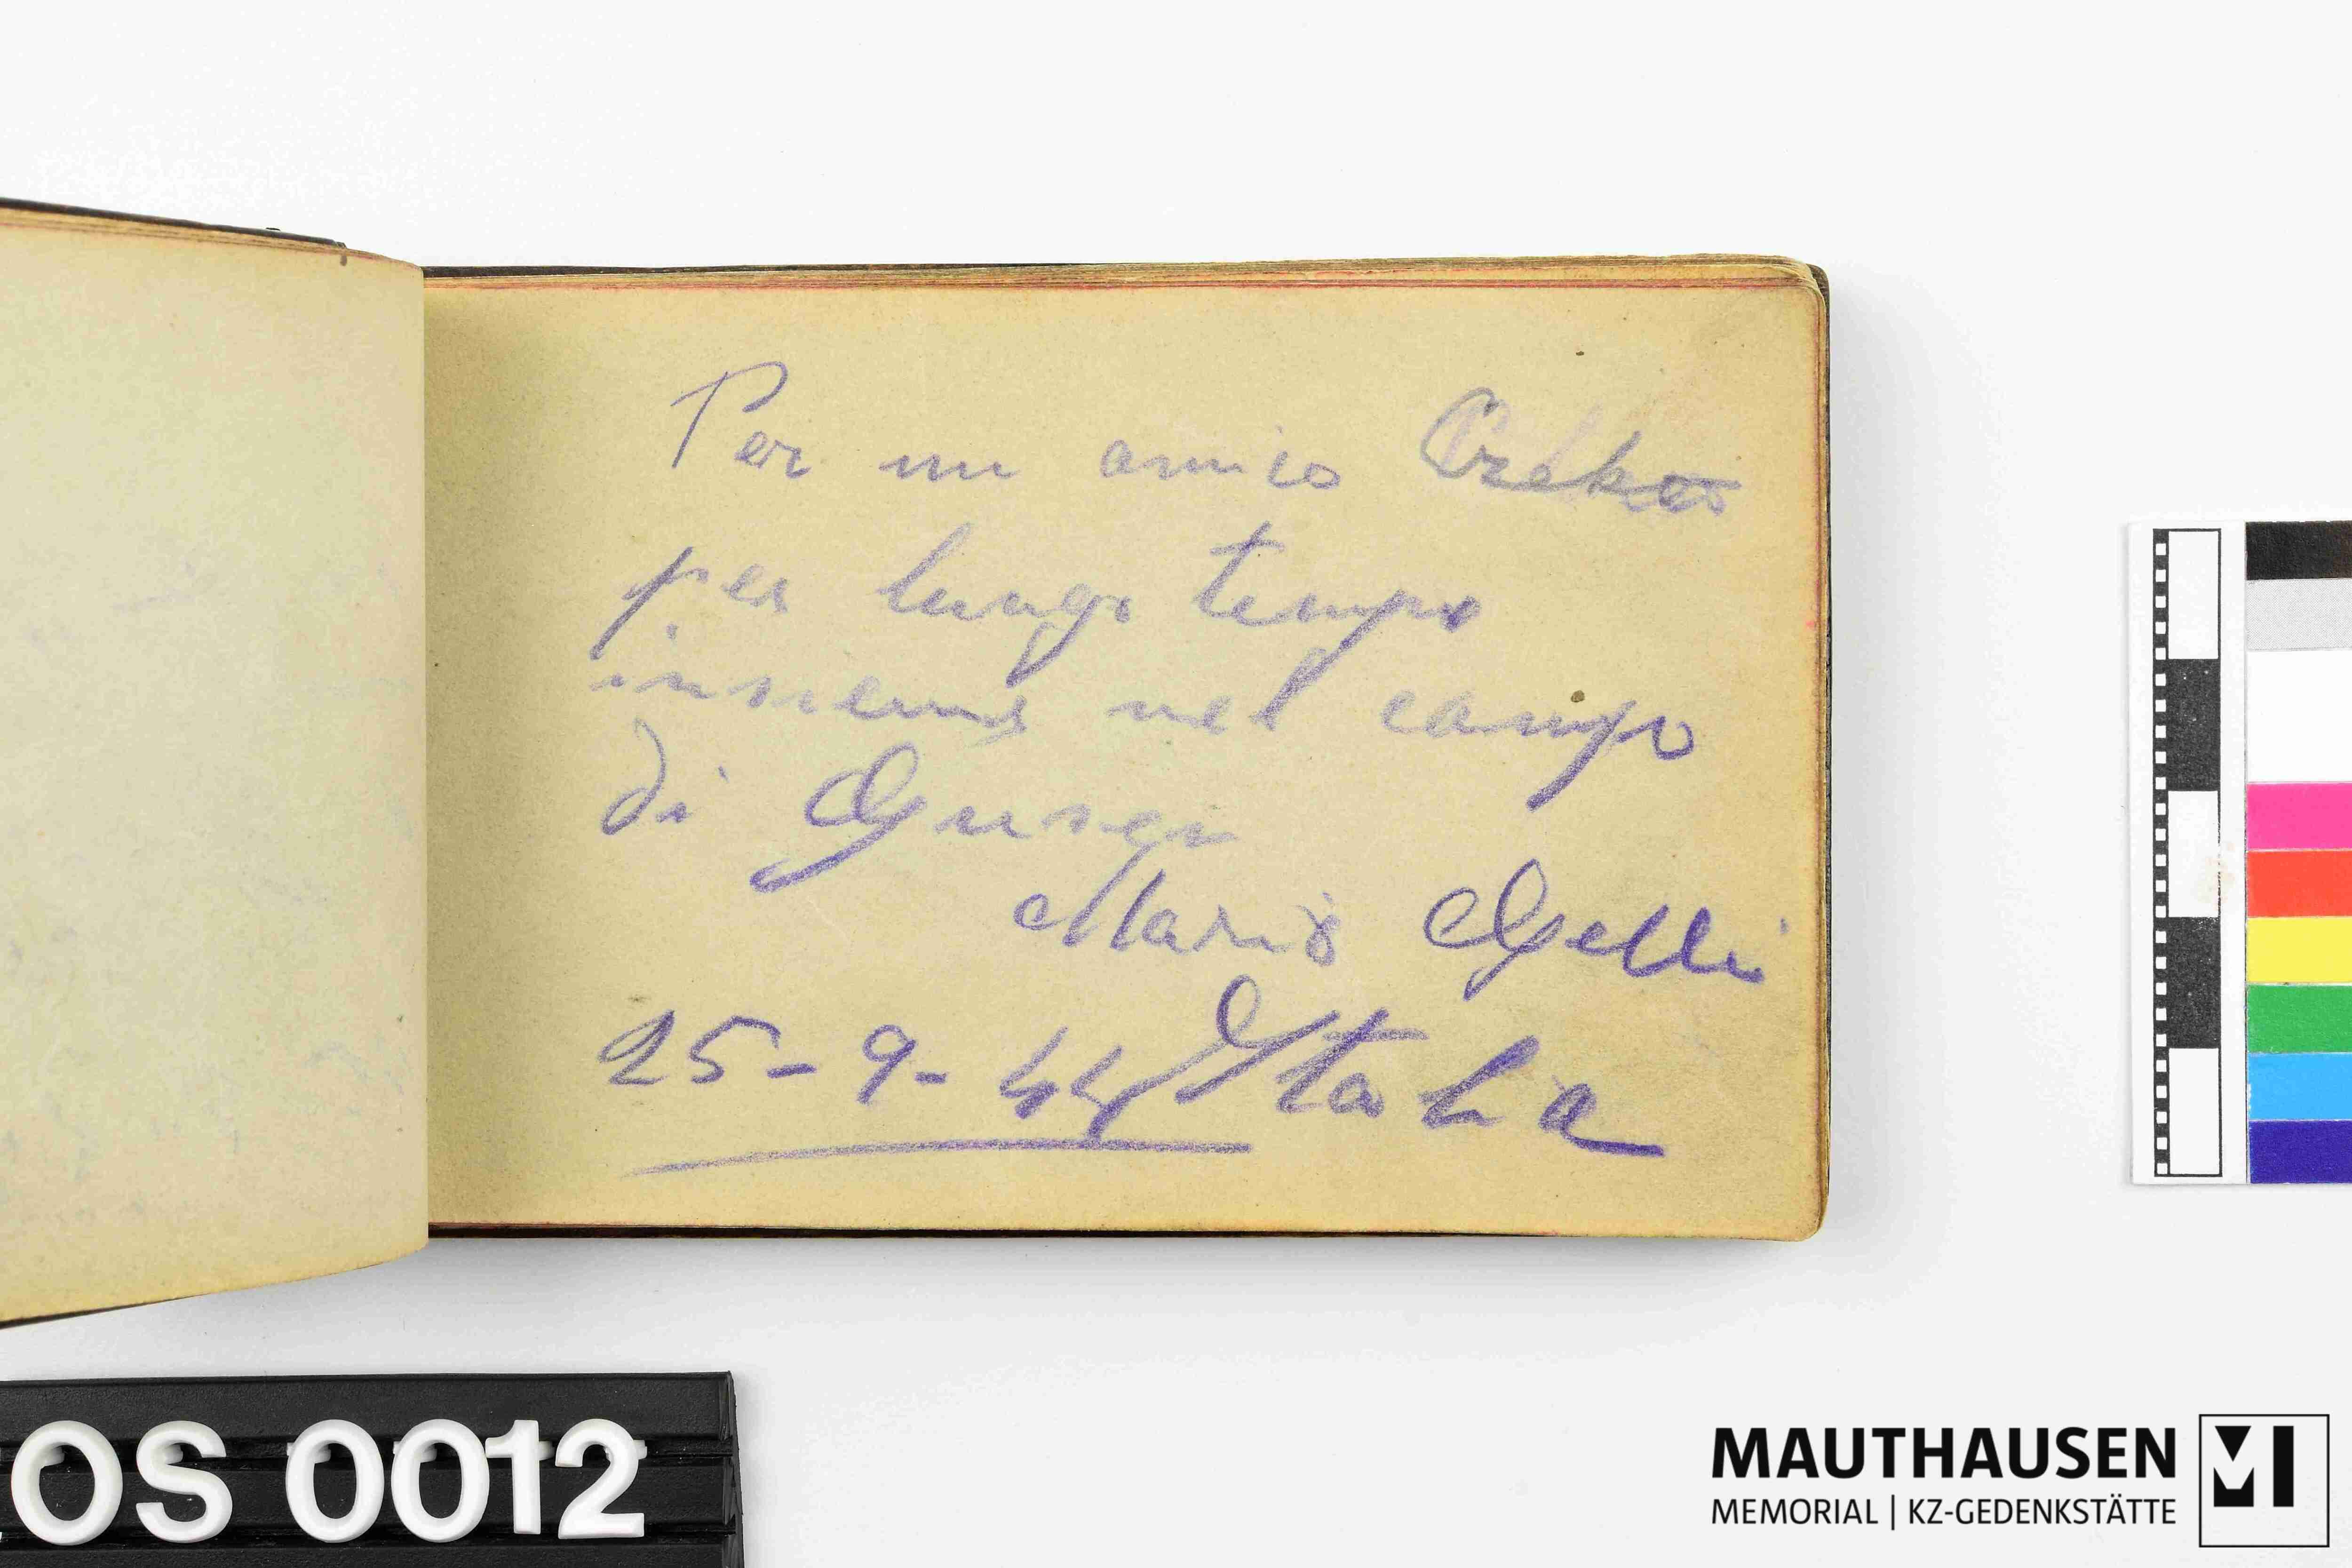 Per un amico
per lungo tempo
insieme nel campo
di Gusen
Mario Gelli
25-9-44 Italia
OS 0012
MAUTHAUSEN
MEMORIAL | KZ-GEDENKSTÄTTE